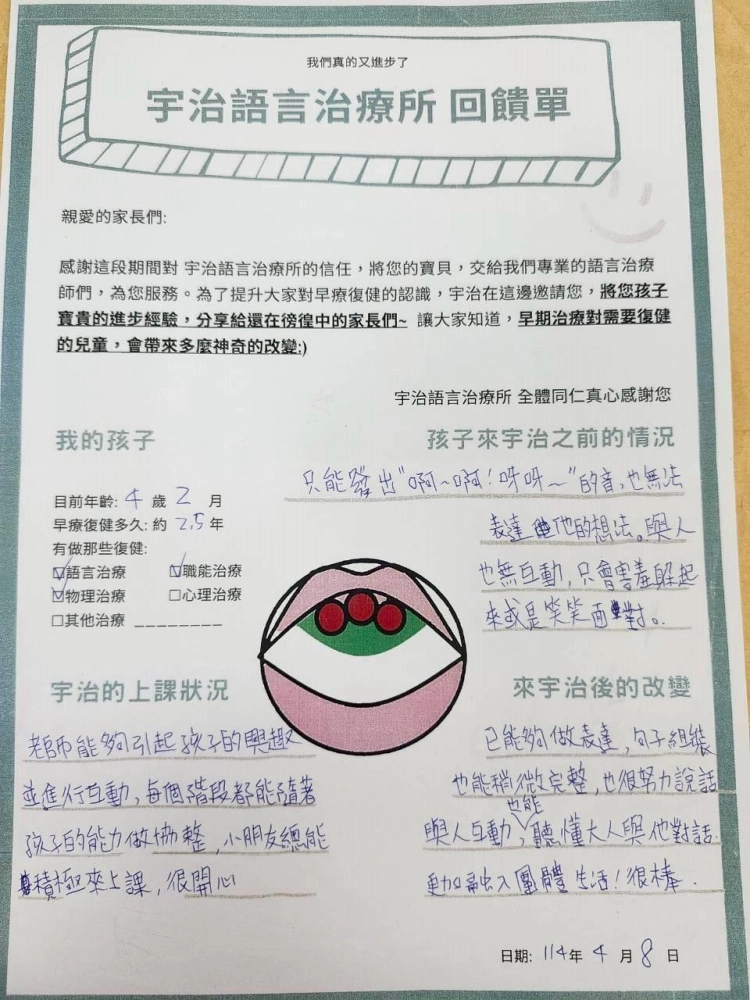 我們真的又進步了
宇治語言治療所 回饋單
親愛的家長們:
感謝這段期間對 宇治語言治療所的信任，將您的寶貝，交給我們專業的語言治療
師們，為您服務。為了提升大家對早療復健的認識，宇治在這邊邀請您，將您孩子
寶貴的進步經驗，分享給還在徬徨中的家長們~ 讓大家知道，早期治療對需要復健
的兒童，會帶來多麼神奇的改變:)
宇治語言治療所 全體同仁真心感謝您
我的孩子
目前年齡: 4 歲 2 月
早療復健多久: 約 2.5 年
有做那些復健:
☑語言治療 ☑職能治療
☑物理治療 □心理治療
□其他治療 ________
孩子來宇治之前的情況
只能發出"啊~啊!呀呀~"的音，也無法
表達他的想法。與人
也無互動，只會害羞躲起
來或是笑笑面對。
宇治的上課狀況
老師能夠引起孩子的興趣
並進行互動，每個階段都能隨著
孩子的能力做協整，小朋友總能
積極來上課，很開心
來宇治後的改變
已能夠做表達，句子組裝
也能稍微完整，也很努力說話
與人互動，也能聽懂大人與他對話.
更加融入團體生活!很棒.
日期: 114年 4 月 8 日